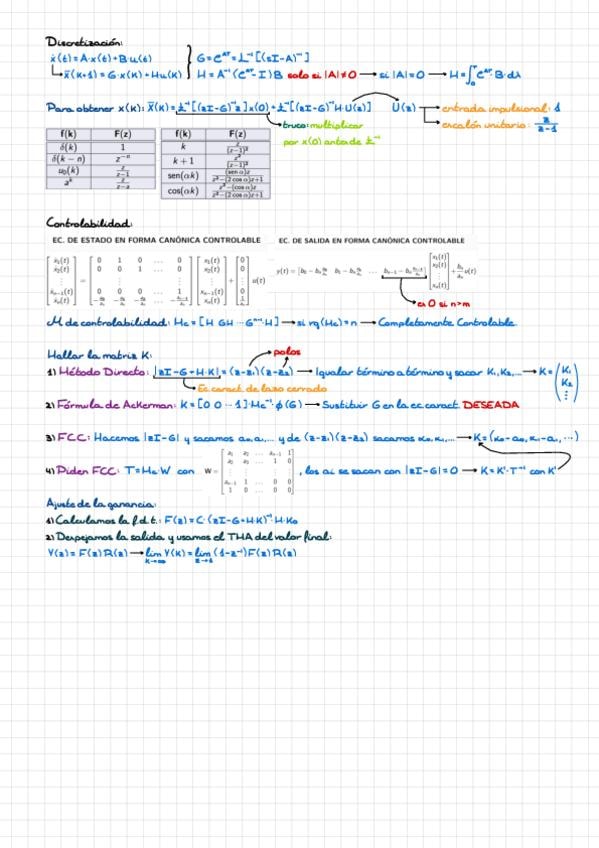 Discretización:
ẋ(t)=A·x(t)+B·u(t)
x̄(k+1)=G·x(k)+Hu(k)
G=e^AT=L⁻¹[(sI-A)⁻¹]
H=A⁻¹(e^AT-I)B solo si |A|≠0 → si |A|=0 → H=∫e^AT·B·dλ
Para obtener x(k): X̄(k)=Z⁻¹[(zI-G)⁻¹z]x(0)+Z⁻¹[(zI-G)⁻¹H·U(z)] U(z) → entrada impulsional: 1
escalón unitario: z/z-1
truco: multiplicar
por x(0) antes de Z⁻¹
f(k) F(z)
δ(k) 1
δ(k − n) z⁻ⁿ
u₀(k) z/z−1
aᵏ z/z−a
f(k) F(z)
k z/(z−1)²
k + 1 z²/(z−1)²
sen(αk) (sen α)z/z²−(2 cos α)z+1
cos(αk) z²−(cos α)z/z²−(2 cos α)z+1
Controlabilidad:
EC. DE ESTADO EN FORMA CANÓNICA CONTROLABLE
EC. DE SALIDA EN FORMA CANÓNICA CONTROLABLE
es 0 si n>m
M de controlabilidad: Mc=[H GH ··· Gⁿ⁻¹·H] → si rg(Mc)=n → Completamente Controlable
Hallar la matriz K:
polos
1) Método Directo: |zI-G+H·K|=(z-z₁)(z-z₂) → Igualar término a término y sacar K₁,K₂,... → K=(K₁ K₂ ⋮)
Ec. caract. de lazo cerrado
2) Fórmula de Ackerman: K=[0 0 ··· 1]·Mc⁻¹·ϕ(G) → Sustituir G en la ec caract. DESEADA
3) FCC: Hacemos |zI-G| y sacamos a₀,a₁,... y de (z-z₁)(z-z₂) sacamos α₀,α₁,... → K=(α₀-a₀, α₁-a₁, ···)
4) Piden FCC: T=Mc·W con W= , los ai se sacan con |zI-G|=0 → K=K'·T⁻¹ con K'
Ajuste de la ganancia:
1) Calculamos la f.d.t.: F(z)=C·(zI-G+H·K)⁻¹·H·K₀
2) Despejamos la salida y usamos el THA del valor final:
Y(z)=F(z)R(z) → lim k→∞ Y(k)=lim z→1 (1-z⁻¹)F(z)R(z)